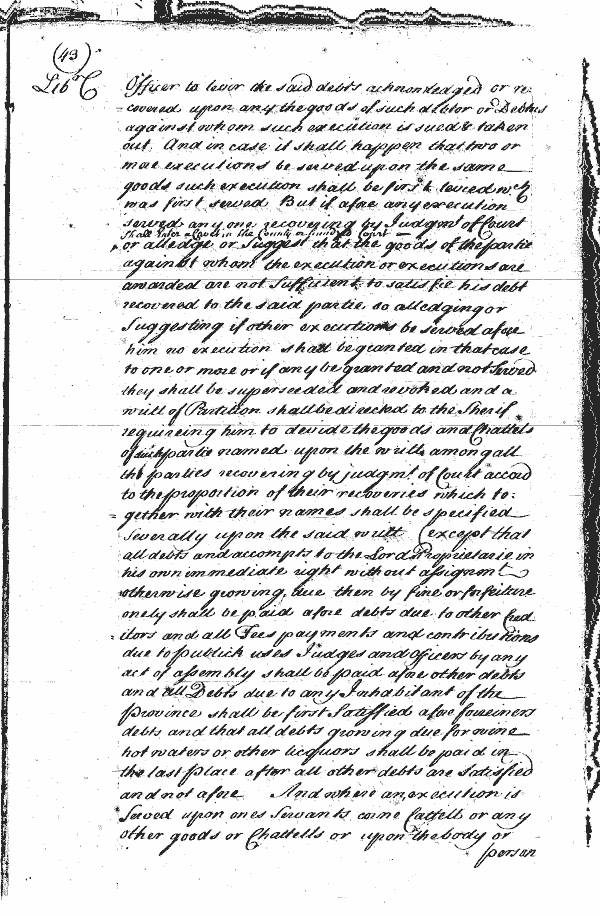 (43)
Lib C
Officer to levor the said debts acknowledged or re:
covered upon any the goods of such debtor or Debtors
against whom such execution is sued & taken
out. And in case it shall happen that two or
more executions be served upon the same
goods such execution shall be first levied wch
was first served But if afore any execution
served any one recovering by Judgmt of Court
shall Enter a Court in the County or
or alledge or Suggest that the goods of the partie
against whom the execution or executions are
awarded are not Sufficient to satisfie his debt
recovered to the said partie so alledging or
Suggesting if other executions be served afore
him no execution shall be granted in that case
to one or more or if any be granted and not Served
they shall be superseeded and revoked and a
writt of Partition shall be directed to the Sherif
requireing him to devide the goods and Chattels
of such partie named upon the writts among all
the parties recovering by judgmt of Court accord
to the proportion of their recoveries which to:
gether with their names shall be specified
Severally upon the said writt (except that
all debts and accompts to the Lord Proprietarie in
his own immediate right without assignmt
otherwise growing due then by fine or forfeiture
onely shall be paid afore debts due to other Cred
itors and all Fees payments and contributions
due to publick uses Judges and Officers by any
act of assembly shall be paid afore other debts
and all Debts due to any Inhabitant of the
Province shall be first Satisfied afore foreiners
debts and that all debts growing due for wine
hot waters or other licquors shall be paid in
the last place after all other debts are Satisfied
and not afore And where an execution is
Served upon ones Servants corne Cattell or any
other goods or Chattells or upon the body or
person